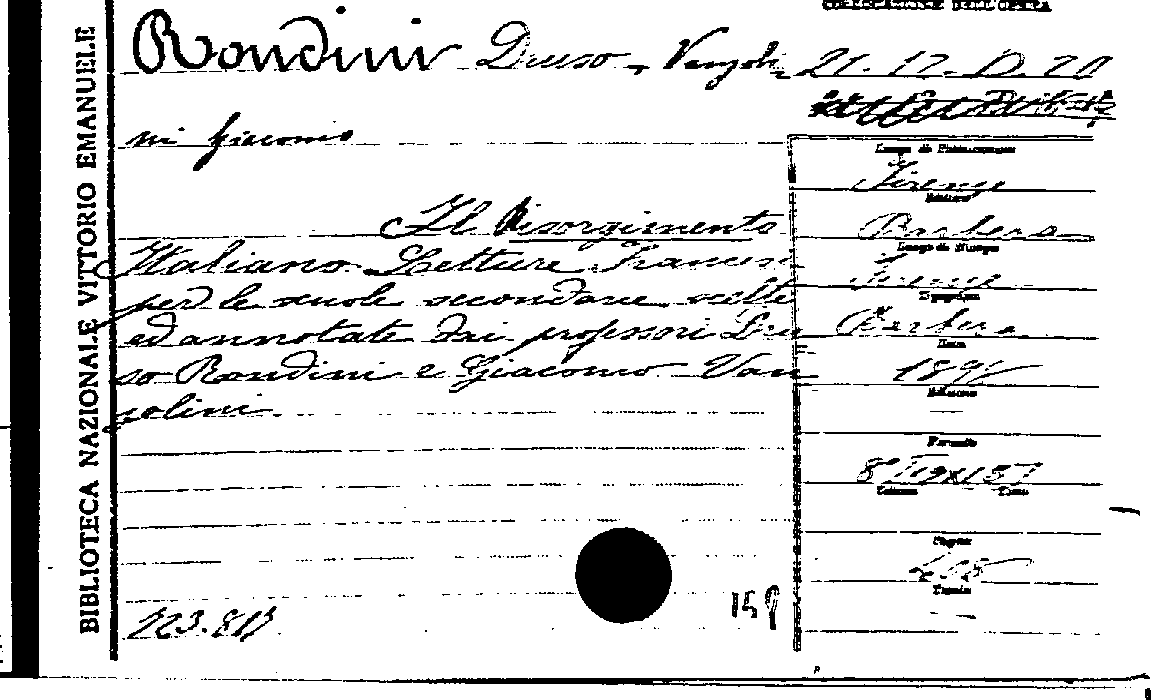 COLLOCAZIONE DELL'OPERA
BIBLIOTECA NAZIONALE VITTORIO EMANUELE
Rondini Druso - Vangoli-
ni Giacomo
21. 12. D. 20
Il Risorgimento
Italiano. Letture Francesi
per le scuole secondarie scelte
ed annotate dai professori Dru
so Rondini e Giacomo Van
golini.
Luogo di Pubblicazione
Firenze
Editore
Barbera
Luogo di Stampa
Firenze
Tipografia
Barbera
Data
Edizione
Formato
8°
Volume Tomo
Pagine
159